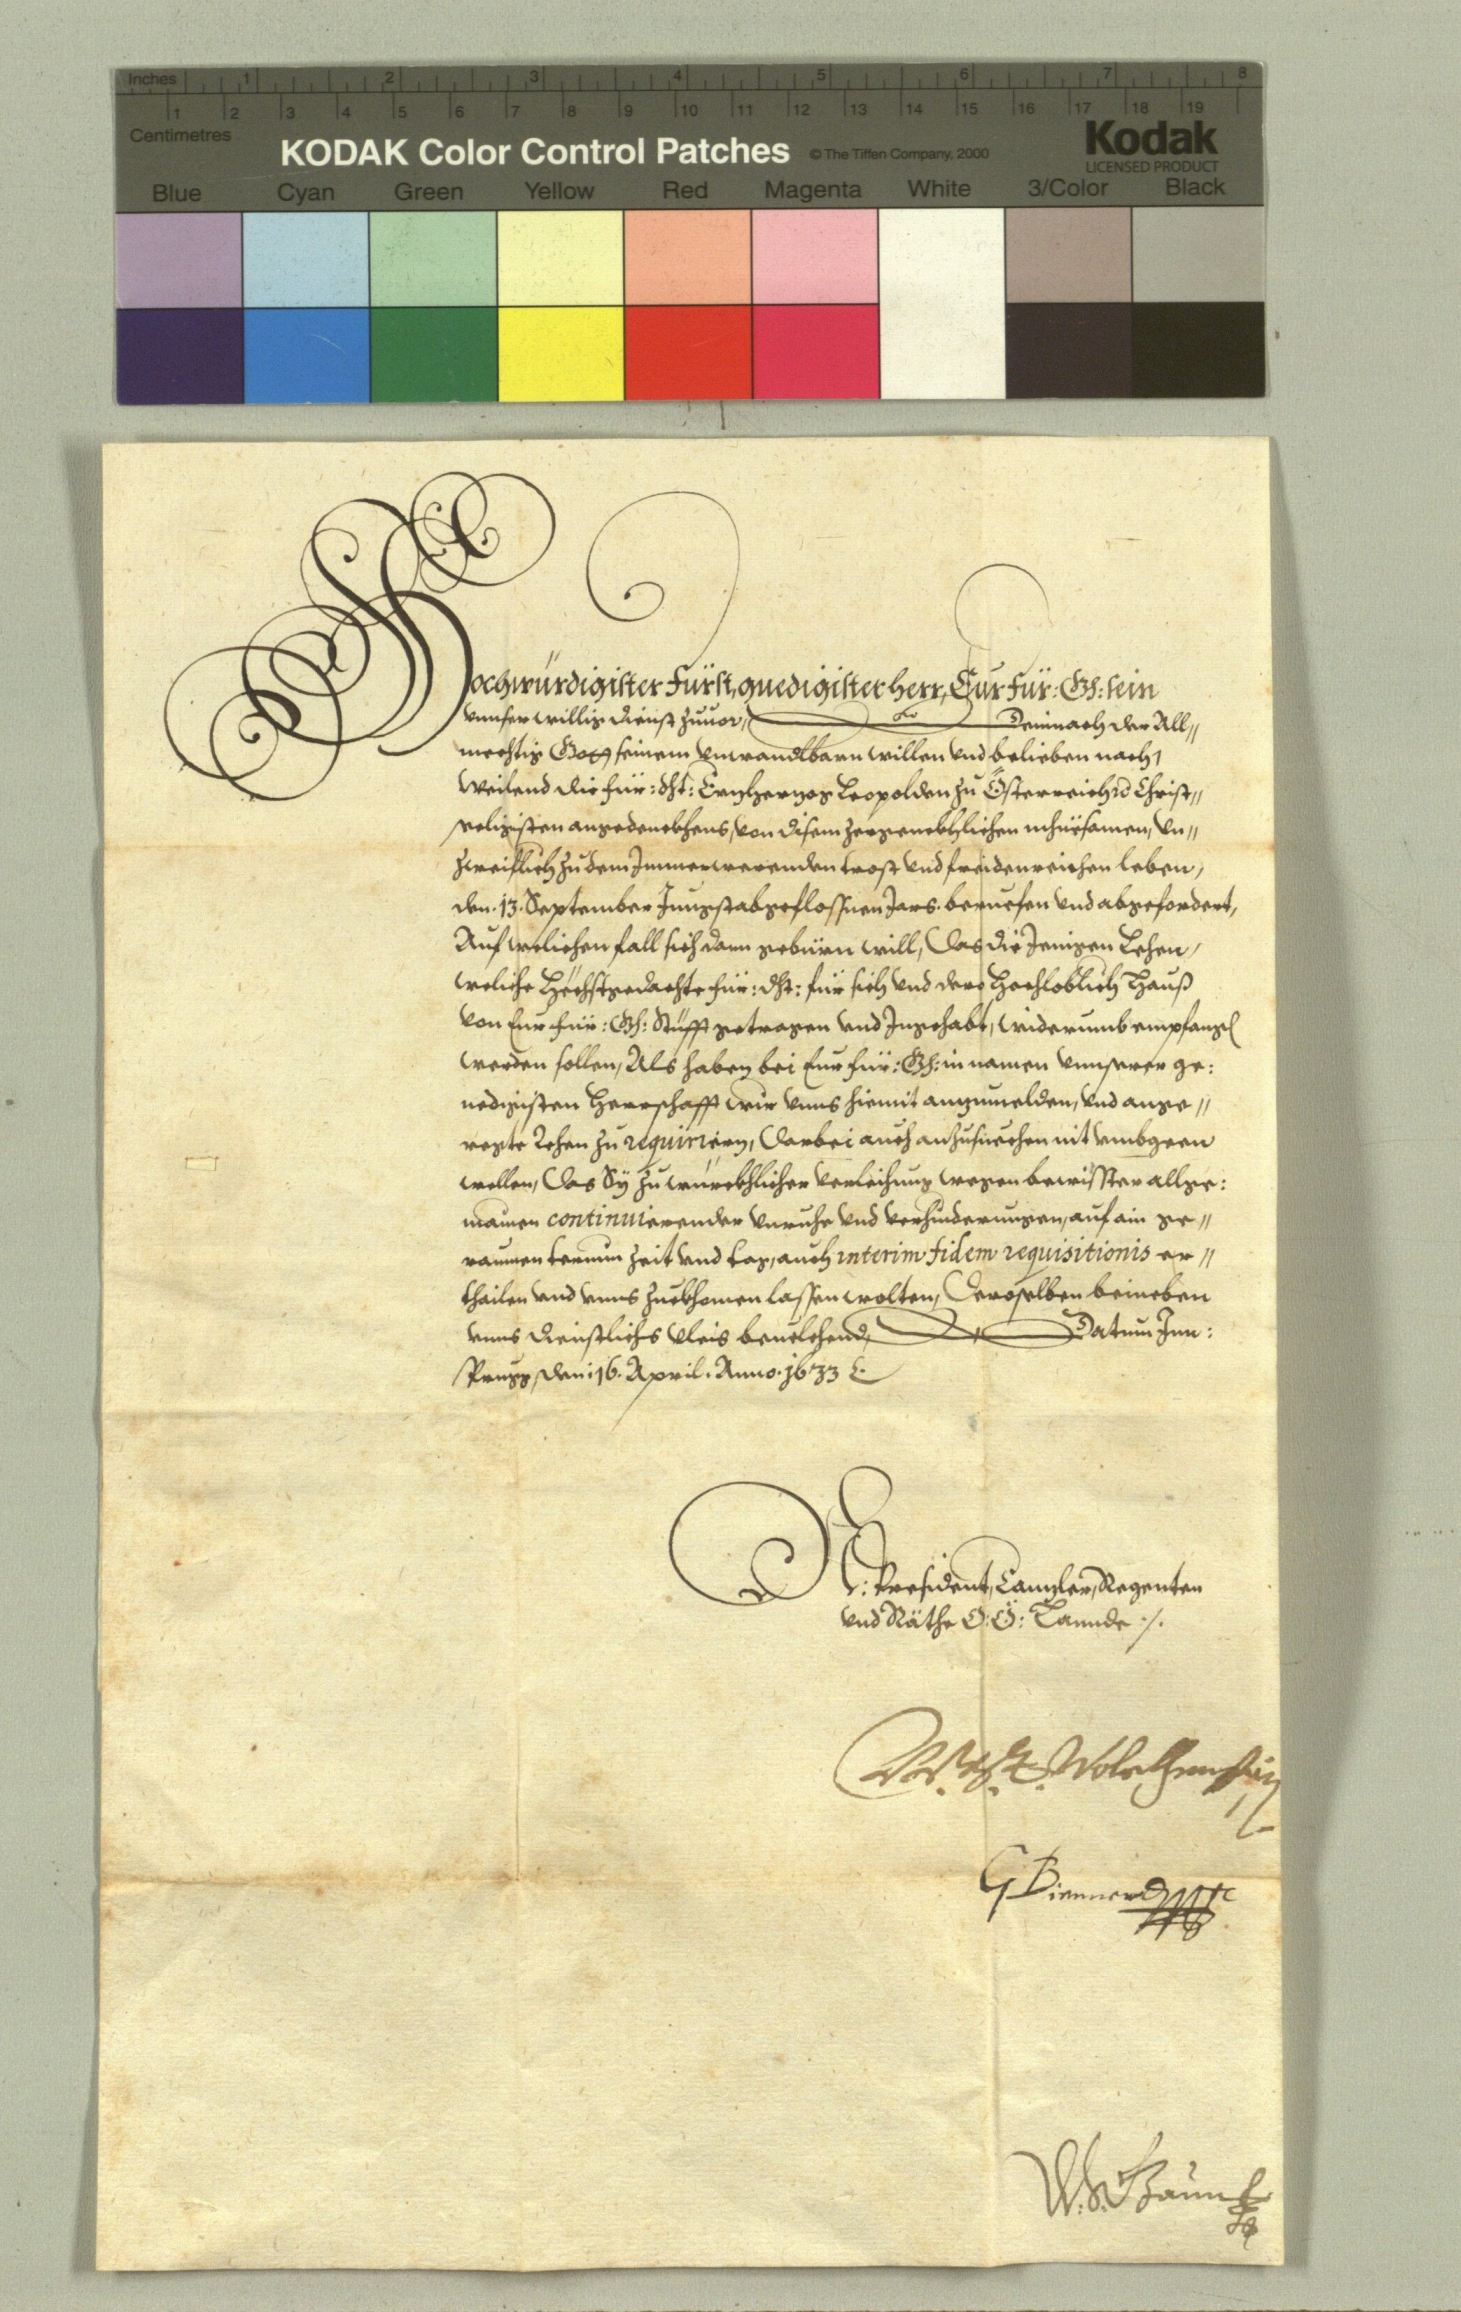 Inches 1 2 3 4 5 6 7 8
Centimetres 1 2 3 4 5 6 7 8 9 10 11 12 13 14 15 16 17 18 19
KODAK Color Control Patches © The Tiffen Company, 2000 Kodak
LICENSED PRODUCT
Blue Cyan Green Yellow Red Magenta White 3/Color Black
Hochwürdigister Fürst, gnedigister herr, Eur Für: Gh: sein
vnnser willig dienst zuuor, Demnach der All„
mechtig Gott seinem vnwandlbarn willen vnd belieben nach,
Weilend die für: dht: Erzherzog Leopolden zu Österreich Christ„
seligisten angedenckhens, von disem zergenckhlichen mhüesamen, vn„
zweiflich zu dem Immerwerenden trost vnd freidenreichen leben,
den. 13. September Jüngst abgeflossnen Jars. beruefen vnd abgefordert,
Auf welichen fall sich dann gebürn will, Das die Jenigen Lehen,
weliche Höchstgedachte für: dht: für sich vnd dero Hochloblich Hauß
von Eur für: Gh: Stüfft getragen vnd Ingehabt, widerumb empfangen
werden sollen, Als haben bei Eur für: Gh: in namen vnnserer ge:
nedigisten Herrschafft wir vnns hiemit anzumelden, vnd ange„
regte Lehen zu requirieren, Darbei auch anzusuechen nit vmbgeen
wellen, Das Sy zu würckhlicher verleihung wegen bewisster allge:
mainen continuierender vnruhe vnd verhinderungen, auf ain ge„
raumen termin Zeit vnd tag, auch interim fidem requisitionis er„
thailen vnd vnns zuekhomen lassen wolten, Deroselben beineben
vnns dienstlichs vleis beuelchend, Datum Inn:
sprugg, den 16. April. Anno. 1633
N: President, Canzler, Regenten
vnd Räthe O: Ö: Lannde ./.
Wolckhenstain
G Bienner